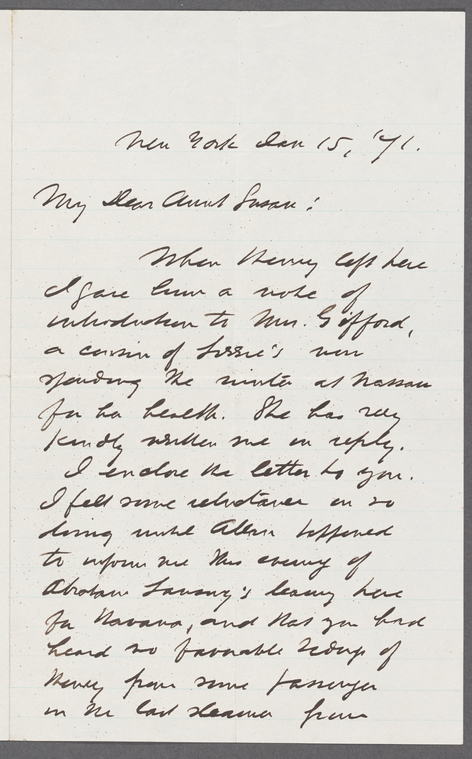 New York Jan 15, '71.
My Dear Aunt Susan:
When Henry left here
I gave him a note of
introduction to Mrs. Gifford,
a cousin of Lizzie's now
spending the winter at Nassau
for her health. She has very
kindly written me in reply.
I enclose the letter to you.
I felt some reluctance in so
doing until Allen happened
to inform me this evening of
Abraham Lansing's leaving here
for Havana, and that you had
heard so favorable tidings of
Henry from some passenger
in the last steamer from